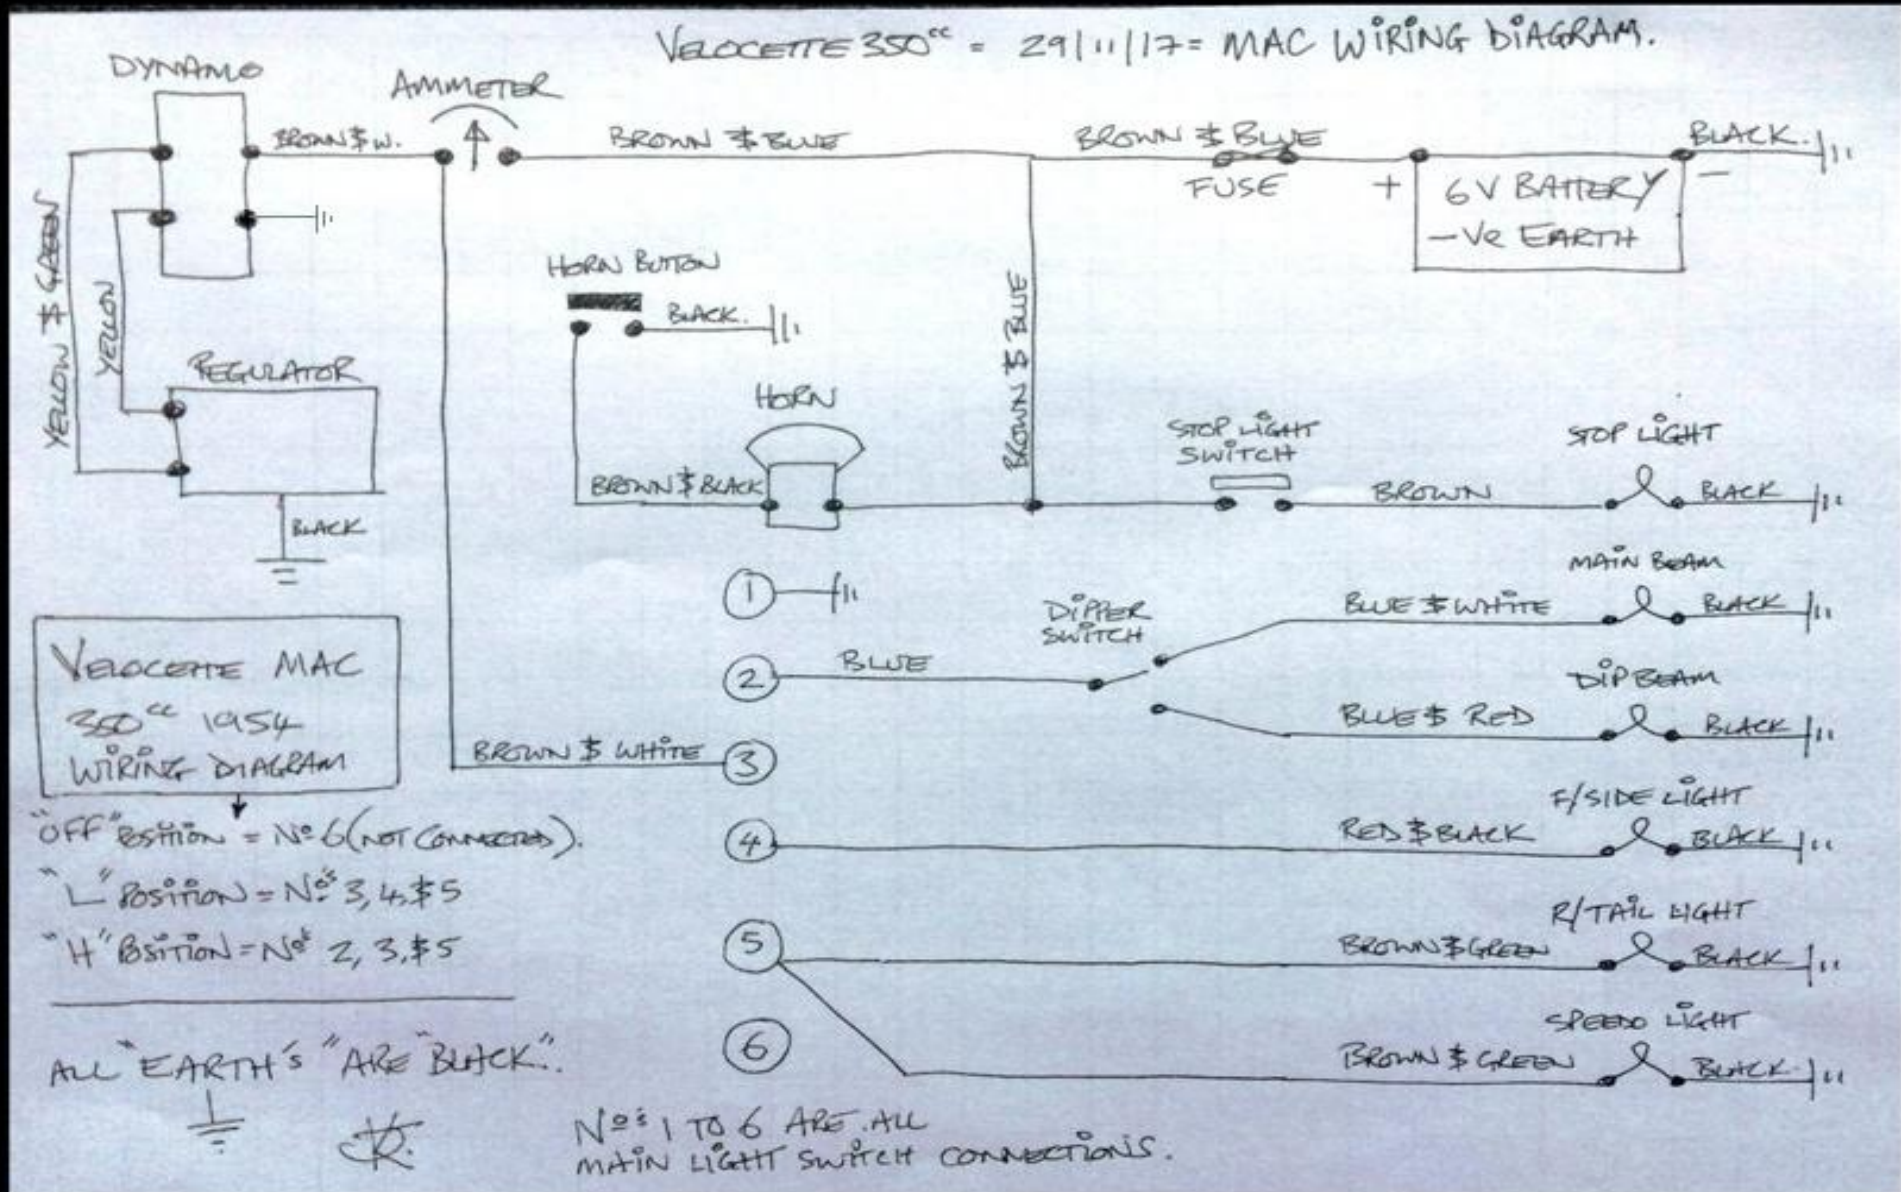 VELOCETTE 350cc = 29/11/17 = MAC WIRING DIAGRAM.
DYNAMO
AMMETER
BROWN & W.
BROWN & BLUE
BROWN & BLUE
BLACK.
FUSE
+
6V BATTERY
-
-VE EARTH
YELLOW & GREEN
YELLOW
HORN BUTTON
BLACK.
BROWN & BLUE
REGULATOR
HORN
STOP LIGHT
SWITCH
STOP LIGHT
BROWN & BLACK
BROWN
BLACK
BLACK
1
MAIN BEAM
DIPPER
SWITCH
BLUE & WHITE
BLACK
2
BLUE
DIP BEAM
BLUE & RED
BLACK
BROWN & WHITE
3
F/SIDE LIGHT
4
RED & BLACK
BLACK
R/TAIL LIGHT
5
BROWN & GREEN
BLACK
SPEEDO LIGHT
6
BROWN & GREEN
BLACK.
VELOCETTE MAC
350cc 1954
WIRING DIAGRAM
"OFF" POSITION = No 6 (NOT CONNECTED).
"L" POSITION = Nos 3, 4, & 5
"H" POSITION = Nos 2, 3, & 5
ALL "EARTH'S" ARE "BLACK".
Nos 1 TO 6 ARE ALL
MAIN LIGHT SWITCH CONNECTIONS.